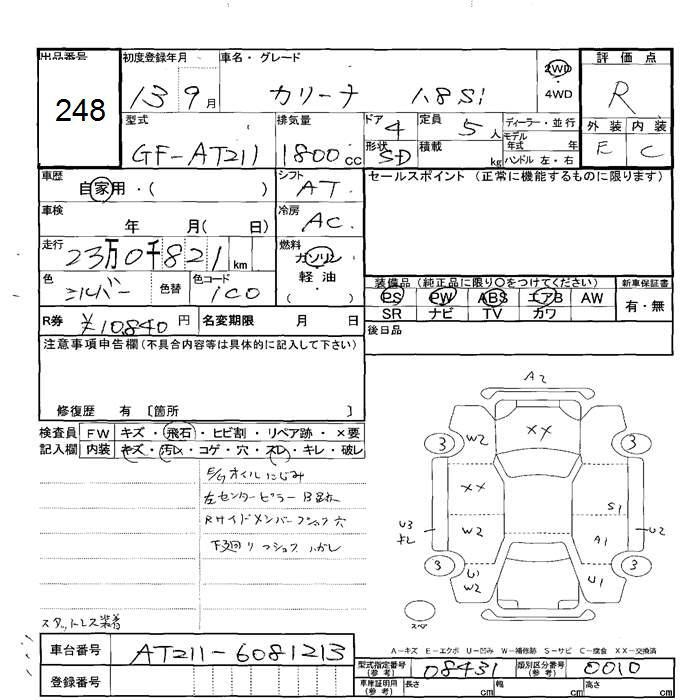 出品番号 初度登録年月 車名・グレード 評価点
248
13 9月 カリーナ 1.8Si 2WD ・ 4WD R
型式 排気量 ドア 4 定員 5人 ディーラー・並行 外装 内装
GF-AT211 1800cc 形状 SD 積載 kg モデル年式 年 E C
ハンドル 左・右
車歴 自家用・( ) シフト AT セールスポイント (正常に機能するものに限ります)
車検 年 月( 日) 冷房 AC
走行 23万0千821km 燃料 ガソリン・軽油 ( )
色 シルバー 色替 色コード 1C0 装備品 (純正品に限り○をつけてください) 新車保証書
PS PW ABS エアB AW 有・無
SR ナビ TV カワ
R券 ¥10,840円 名変期限 月 日 後日品
注意事項申告欄(不具合内容等は具体的に記入して下さい)
修復歴 有 〔箇所 〕
検査員 FW キズ・飛石・ヒビ割・リペア跡・×要
記入欄 内装 キズ・汚レ・コゲ・穴・スレ・キレ・破レ
E/Gオイルにじみ
左センターピラー
Rサイドメンバー 穴
下廻り
スタットレス装着
A2
XX
3 W2 3
XX
S1
U3 W2 A1 U2
3 U1 W2 U1 3
スペア
A-キズ E-エクボ U-凹み W-補修跡 S-サビ C-腐食 XX-交換済
車台番号 AT211-6081213
登録番号
型式指定番号(参考) 08431 類別区分番号(参考) 0010
車庫証明用(参考) 長さ cm 幅 cm 高さ cm